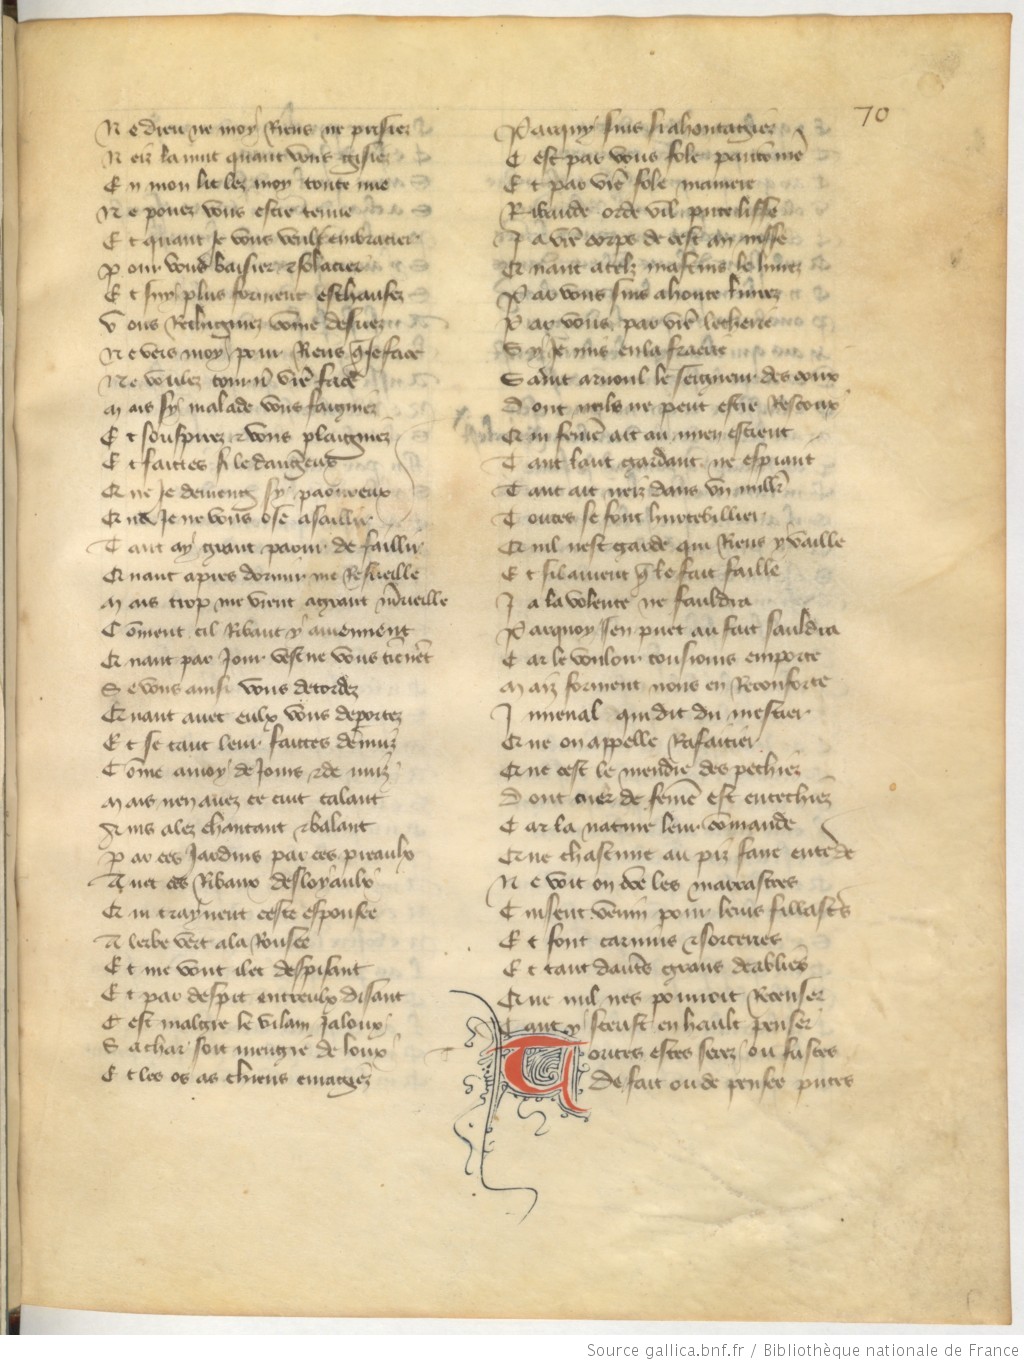 70
Ne dieu ne moy Riens ne prisiez
Neiz la nuit quant vous gisiez
En mon lit lez moy toute nue
Ne pouez vous estre tenue
Et quant Je vous veulx embracier
pour vous baisier et solacier
Et suy plus forment eschaufez
Vous Rechignez come
Ne vers moy pour Riens q̃ Je face
Ne voulez tourn̄ vr̄e face
Mais sy malade vous faigniez
Et souspirez et vous plaigniez
Et faictes si le dangeus
Que Je deuieng sy paoureux
Que Je ne vous ose asaillir
Tant ay grant paour de faillir
Quant apres dormir me Resueille
Mais trop me vient a grant m̄ueille
Cōment cil Ribaut y auiennent
Quant par Jour vest ne vous tienēt
Se vous ainsi vous detordez
Quant auec eulx vous deportez
Et se tant leur faictes dēnuiz
Cōme a moy de Jours et de nuiz
Mais nen auez ce cuit talant
Ains alez chantant et balant
par ces Jardins par ces preaulx
Auec ces Ribaux desloyaulx
Qui traynent ceste espousee
A lerbe vert a la Rousee
Et me vont ilec despisant
Et par despit entreulx disant
Cest malgre le vilain Jaloux
Sa char soit mengie de loux
Et les os as chiens enragez
Par quy suis si ahontagiez
Cest par vous fole
Et par vr̄e fole maniere
Ribaude orde vil pute lisse
Ja vr̄e corps de cest an nisse
Quant a telz mastins le liurez
Par vous suis a honte liurez
Par vous par vr̄e lecherie
Suy Je mis en la frarie
Saint arnoul le seigneur des coux
Dont nulz ne peut estre Rescoux
Qui femē ait au mien escient
Tant laut gardant ne espiant
Tant ait neiz dans vn mill'r
Toutes se font hurtebillier
Quil nest garde qui Riens y vaille
Et sil auient q̃ le fait faille
Ja la volente ne fauldra
Par quoy sen puet au fait sauldra
Car le vouloir tousiours emporte
Maiz forment nous en Reconforte
Juuenal qui dit du mestier
Que on appelle Rafaitier
Que cest le mendre des pechiez
Dont cuer de femē est entechiez
Car la nature leur cōmande
Que chascune au piz faire entēde
Ne voit on cōe les marrastres
Cuisent venin pour leurs fillastres
Et font carmins et sorceries
Et tant dautres grans deablies
Que nul nes pouuoit Recenser
Tant y sceust en hault penser
Toutes estes serez ou fustes
De fait ou de pensee putes
Source gallica.bnf.fr / Bibliothèque nationale de France